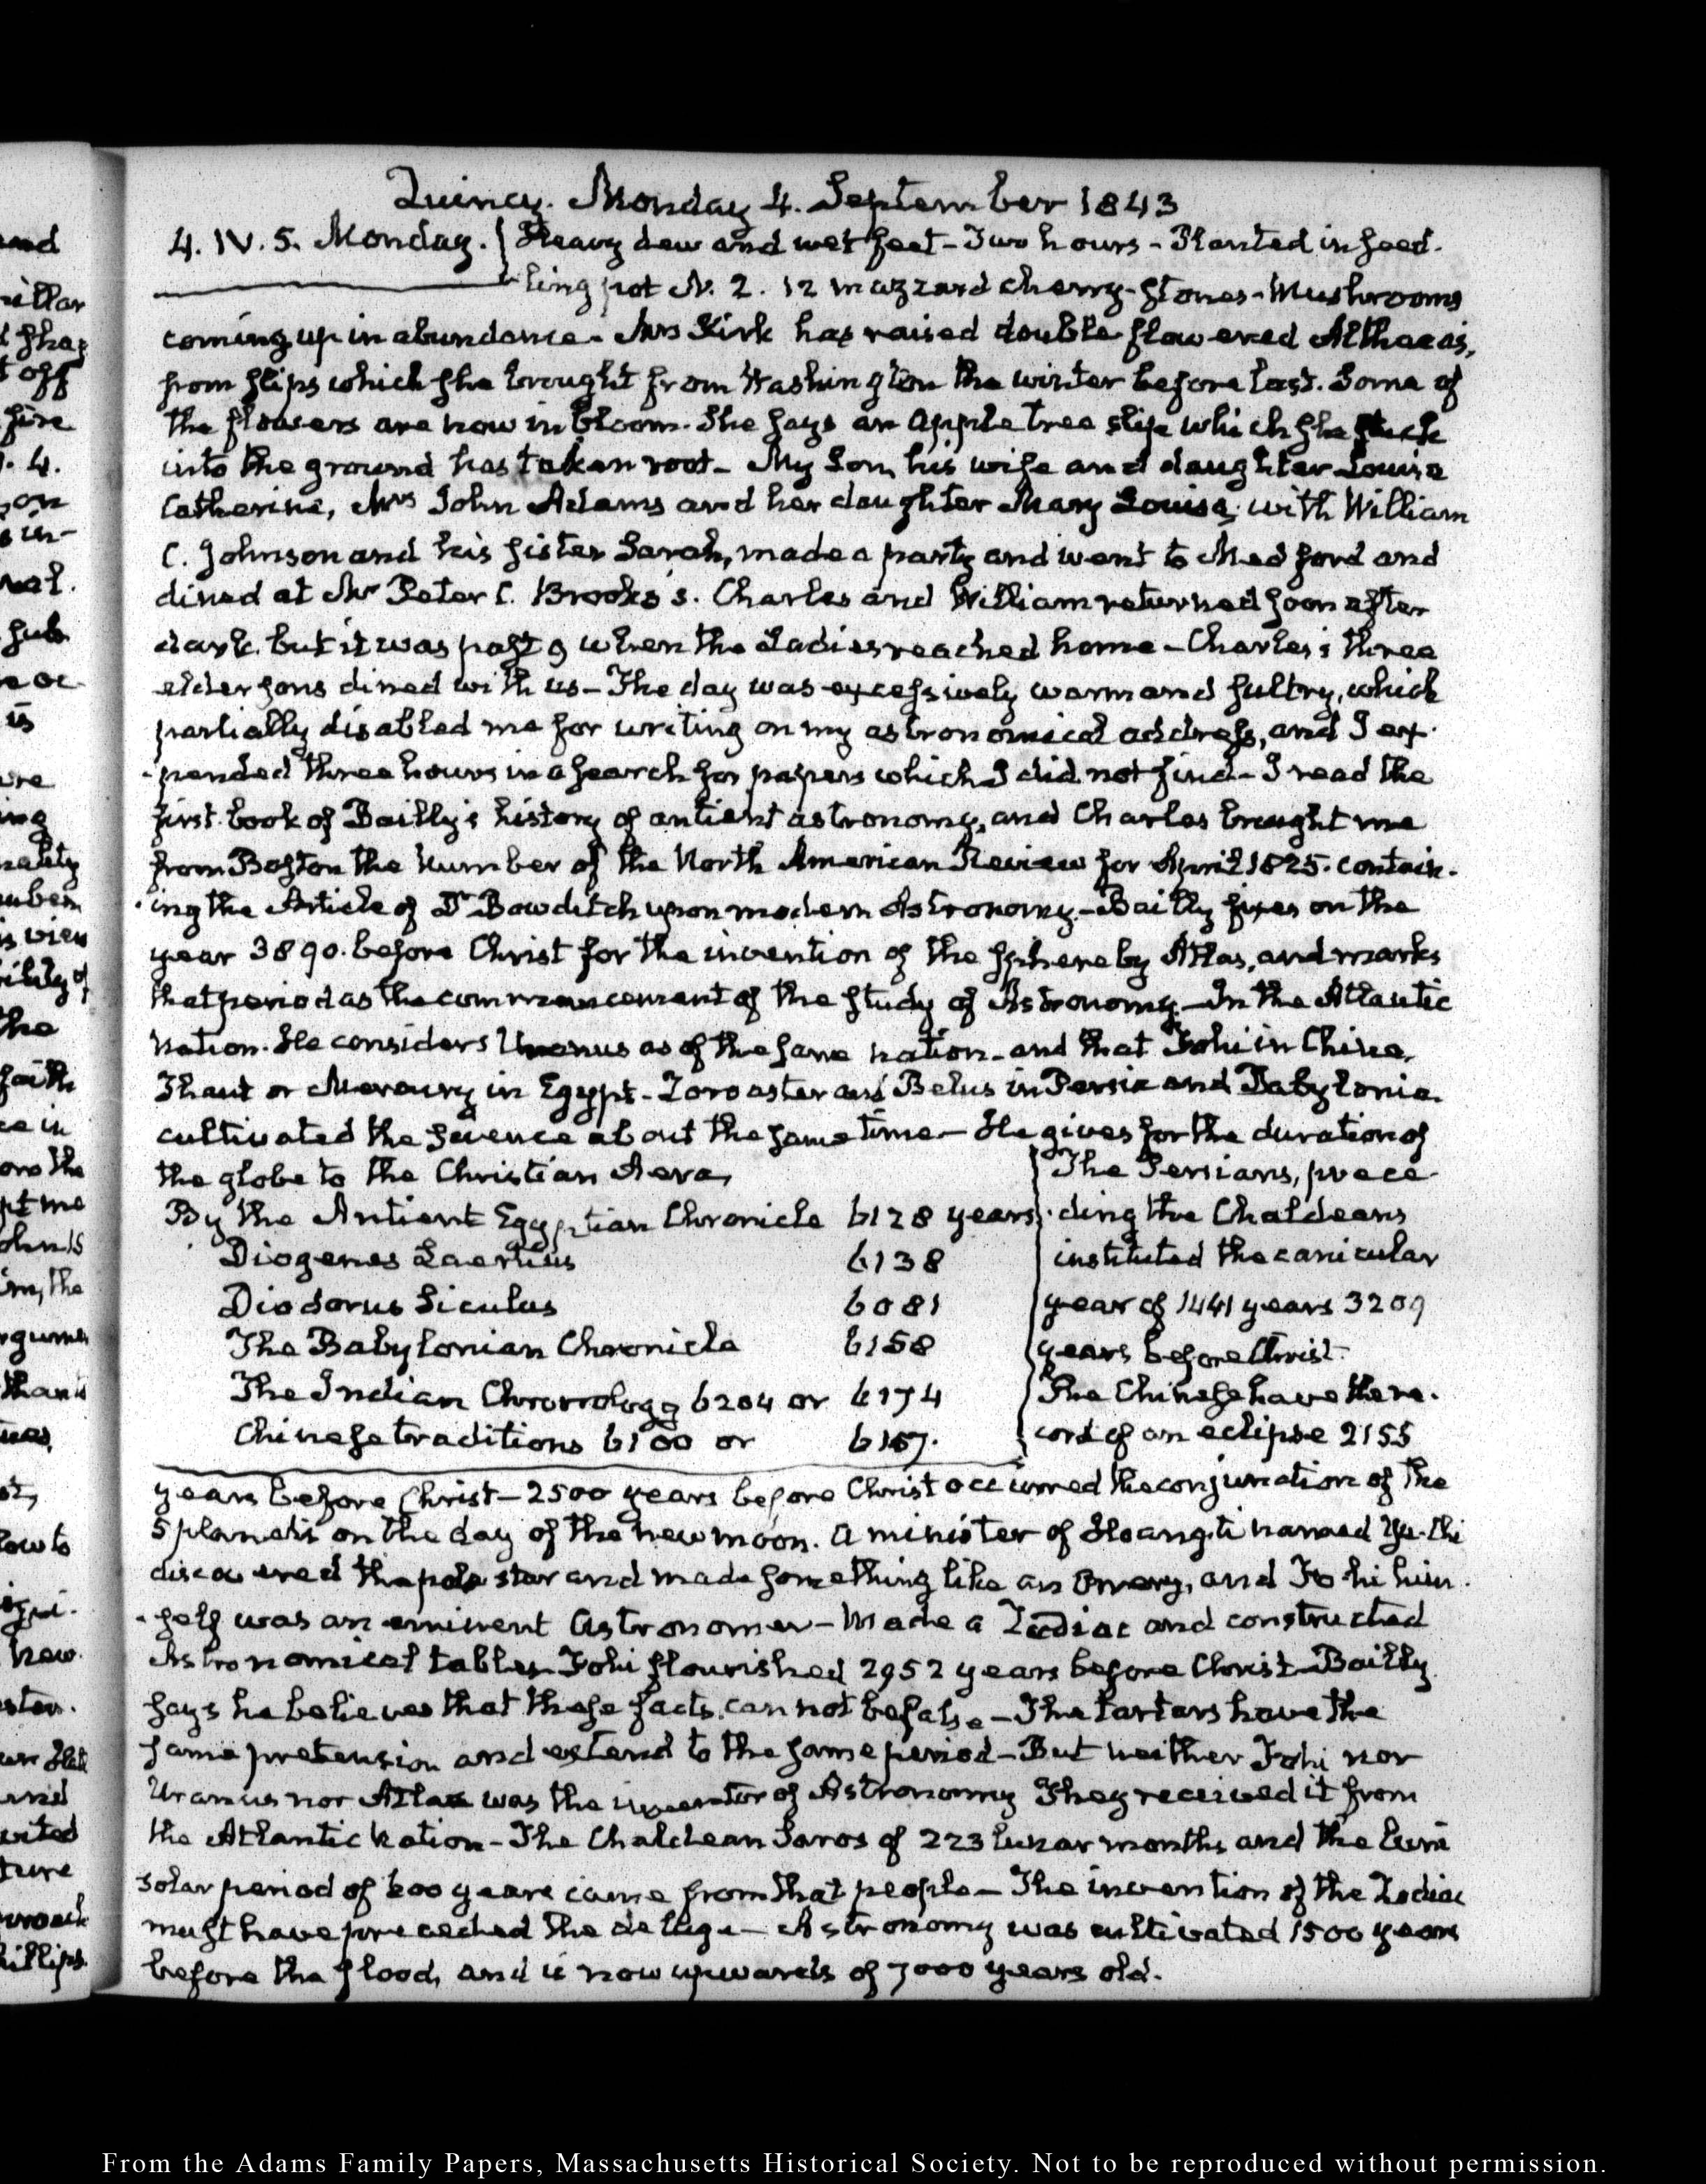 Quincy. Monday 4. September 1843
4. IV. 5. Monday. Heavy dew and wet feet - Two hours - Planted in seed-
-ling pot N. 2. 12 mazzard cherry-stones - Mushrooms
coming up in abundance - Mrs Kirk has raised double flowered Althaeas,
from slips which she brought from Washington the winter before last. Some of
the flowers are now in bloom. She says an apple tree slip which she stuck
into the ground has taken root - My Son, his wife and daughter Louisa
Catherine, Mrs John Adams and her daughter Mary Louisa, with William
C. Johnson and his sister Sarah, made a party and went to Medford and
dined at Mr Peter C. Brooks's. Charles and William returned soon after
dark. but it was past 9 when the Ladies reached home - Charles's three
elder sons dined with us - The day was excessively warm and sultry, which
partially disabled me for writing on my astronomical address, and I ex-
-pended three hours in a search for papers which I did not find - I read the
first book of Bailly's history of antient astronomy, and Charles brought me
from Boston the Number of the North American Review for April 1825. contain-
-ing the Article of Dr Bowditch upon modern Astronomy - Bailly fixes on the
year 3890. before Christ for the invention of the sphere by Atlas, and marks
that period as the commencement of the study of Astronomy - In the Atlantic
nation. He considers Uranus as of the same nation - and that Fohi in China,
Thaut or Mercury in Egypt - Zoroaster and Belus in Persia and Babylonia
cultivated the science about the same time - He gives for the duration of
the globe to the Christian Aera,
By the Antient Egyptian Chronicle 6128 years
Diogenes Laertius 6138
Diodorus Siculus 6081
The Babylonian Chronicle 6158
The Indian Chronology 6204 or 6174
Chinese traditions 6100 or 6157.
The Persians, prece-
-ding the Chaldeans
instituted the canicular
year of 1441 years 3209
years before Christ.
The Chinese have the re-
cord of an eclipse 2155
years before Christ - 2500 years before Christ occurred the conjunction of the
5 planets on the day of the new moon. A minister of Hoangti named Yu-Chi
discovered the pole star and made something like an Orrery, and Fohi him-
-self was an eminent Astronomer - Made a Zodiac and constructed
Astronomical tables - Fohi flourished 2952 years before Christ - Bailly
says he believes that these facts can not be false - The tartars have the
same pretension and extend to the same period - But neither Fohi nor
Uranus nor Atlas was the inventor of Astronomy They received it from
the Atlantic Nation - The Chaldean Saros of 223 lunar months and the Luni
solar period of 600 years came from that people - The invention of the Zodiac
must have preceded the deluge - Astronomy was cultivated 1500 years
before the flood, and is now upwards of 7000 years old.
From the Adams Family Papers, Massachusetts Historical Society. Not to be reproduced without permission.